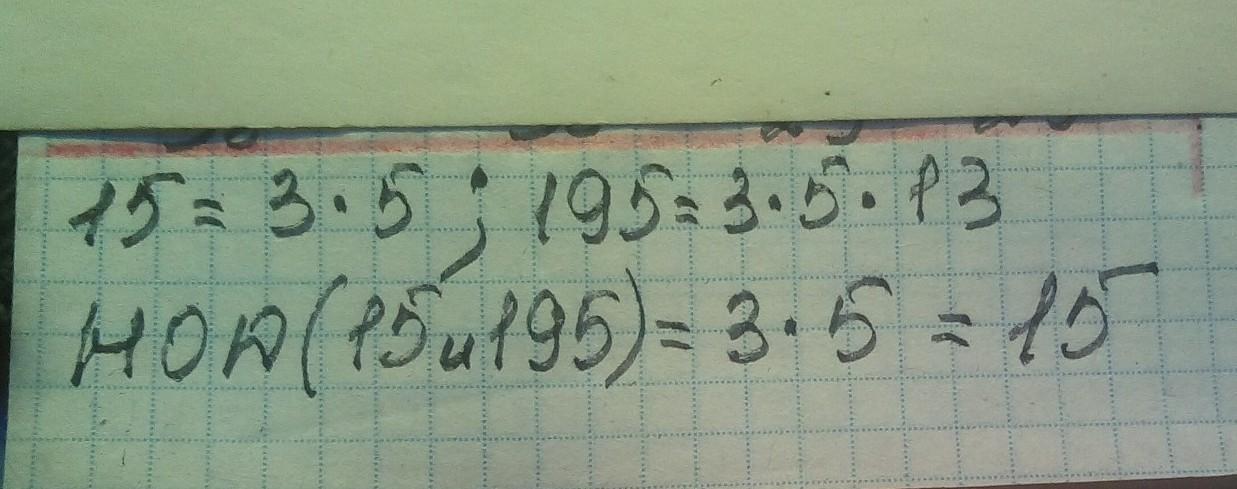 15 = 3 · 5 ; 195 = 3 · 5 · 13
НОД (15 и 195) = 3 · 5 = 15